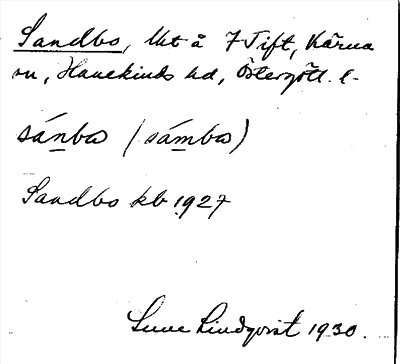 Sandbo, lht å 7 Tift, Kärna
sn, Hanekinds hd, Östergötl. l.
sánbo (sámbo)
Sandbo kb 1927
Sune Lindqvist 1930.